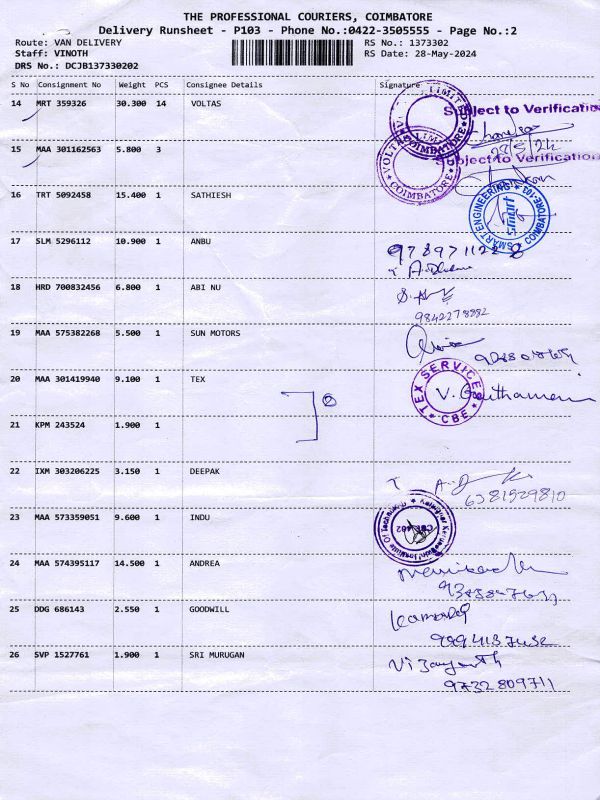 THE PROFESSIONAL COURIERS, COIMBATORE
Delivery Runsheet - P103 - Phone No.:0422-3505555 - Page No.:2
Route: VAN DELIVERY RS No.: 1373302
Staff: VINOTH RS Date: 28-May-2024
DRS No.: DCJB137330202
S No Consignment No Weight PCS Consignee Details Signature
14 MRT 359326 30.300 14 VOLTAS
Subject to Verification
15 MAA 301162563 5.800 3
Subject to Verification
COIMBATORE
16 TRT 5092458 15.400 1 SATHIESH
SMART ENGINEERING
smart
17 SLM 5296112 10.900 1 ANBU
18 HRD 700832456 6.800 1 ABI NU
9842278982
19 MAA 575382268 5.500 1 SUN MOTORS
20 MAA 301419940 9.100 1 TEX
TEX SERVICES
CBE
21 KPM 243524 1.900 1
22 IXM 303206225 3.150 1 DEEPAK
6381529810
23 MAA 573359051 9.600 1 INDU
24 MAA 574395117 14.500 1 ANDREA
25 DDG 686143 2.550 1 GOODWILL
26 SVP 1527761 1.900 1 SRI MURUGAN
9732809711